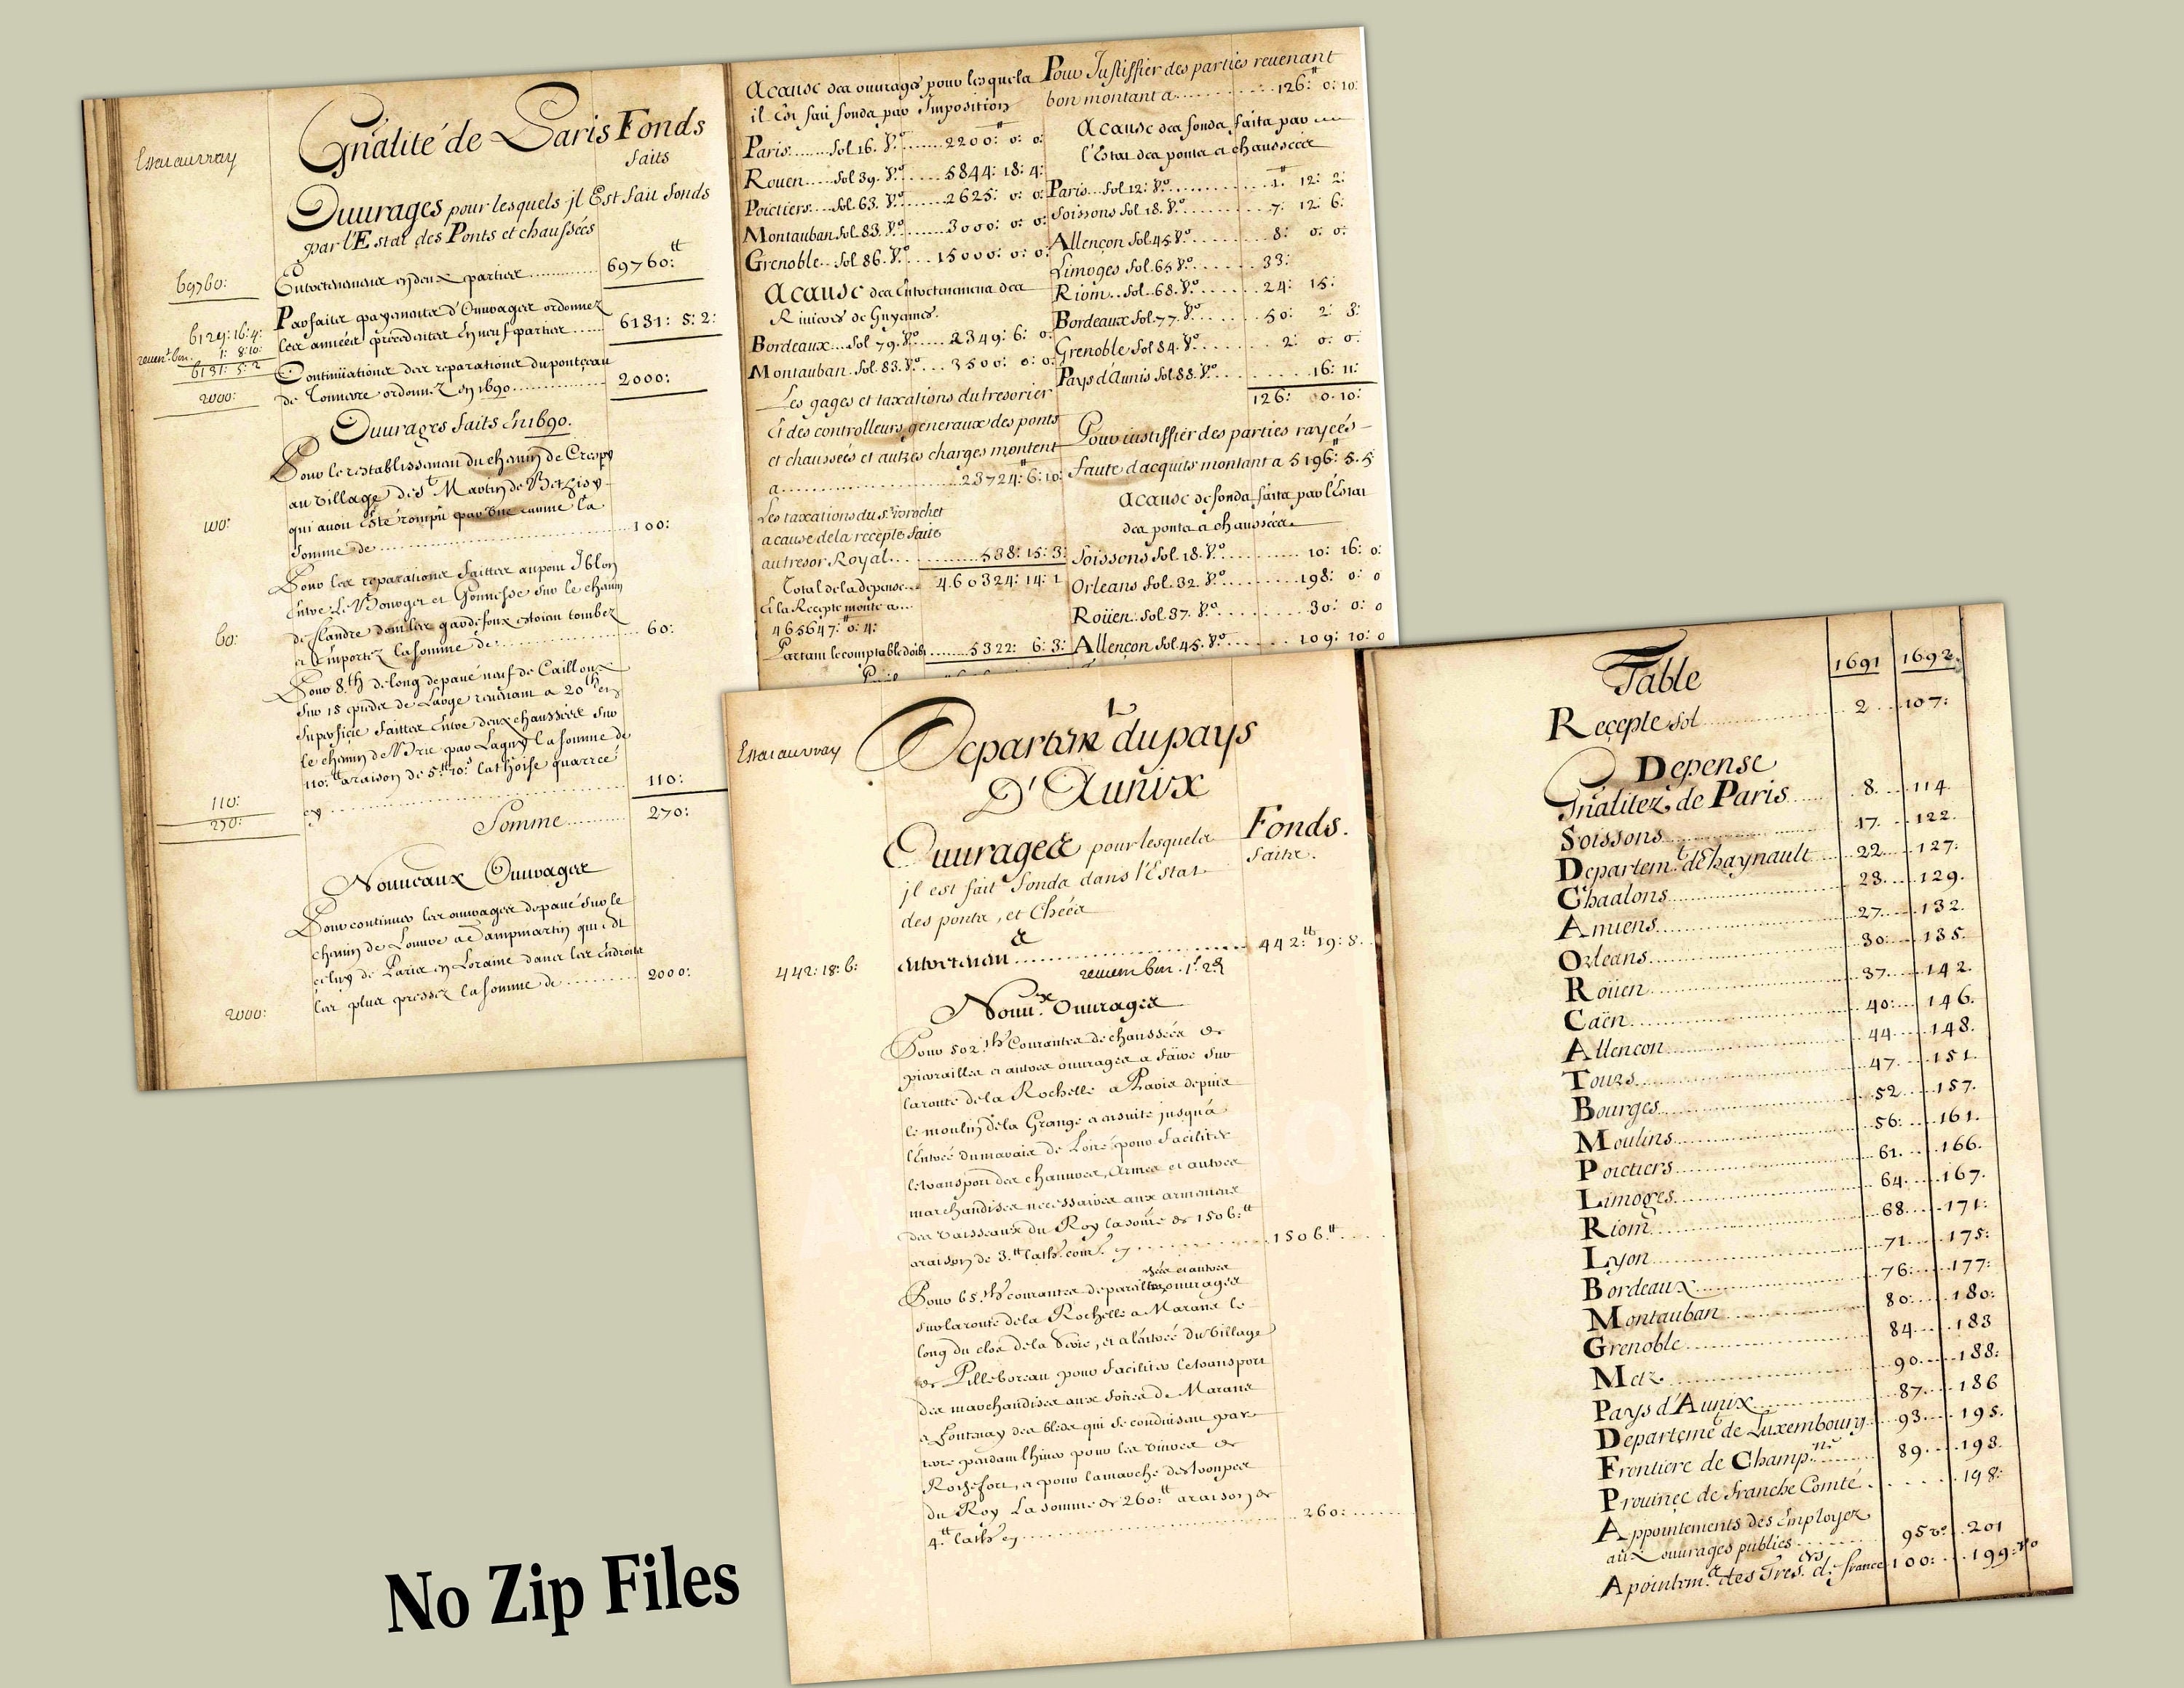 Essai au vray
Gnãlité de Paris Fonds
faits
Ouurages pour lesquels jl Est fait fonds
par l'Estat des Ponts et chaussées
69760: Entretenemens en deux parties ........... 69760:tt
Parfaites payemens d'Ouurages ordonnez
6129: 16: 4: les années precedentes en neuf parties ...... 6131: 5: 2:
reuent. bon. 1: 8: 10:
6131: 5: 2
Continüations des reparations du ponceau
2000: de Tonnerre ordonnez en 1690 ............ 2000:
Ouurages faits En 1690.
Pour le restablissement du chemin de Crespy
au village de St. Martin de Betizy
qui auoit Esté rompü par une rauine la
100: somme de .................. 100:
Pour les reparations faittes au pont Jblon
Entre Le Bourget et Gonnesse sur le chemin
de flandre dont les gardefoux estoient tombez
60: et Emportez la somme de .................. 60:
Pour 8.th de long de paué neuf de Cailloux
sur 15 pieds de Large reuenant a 20th en
superficie faittes Entre deux chaussées sur
le chemin de Brie par Lagny la somme de
110:tt a raison de 5.tt10.s la thoise quarrée
110: cy .................. 110:
270: Somme ......... 270:
Nouueaux Ouurages
Pour continuer les ouurages de paué sur le
chemin de Louure a Dampmartin qui Est
celuy de Paris en Loraine dans les Endroits
2000: les plus pressez la somme de ........ 2000:
Acause des ouurages pour lesquels
il Est fait fonds par Jmposition
Paris ...... fol 16. V.o ....... 2200:tt 0: 0:
Rouen ..... fol 39. V.o ....... 5844: 18: 4:
Poictiers .... fol. 63. V.o ....... 2625: 0: 0:
Montauban fol. 83. V.o ....... 3000: 0: 0:
Grenoble .. fol. 86. V.o .... 15000: 0: 0:
Acause des Entretenemens des
Riuieres de Guyennes.
Bordeaux ... fol 79. V.o ..... 2349: 6: 0:
Montauban . fol. 83. V.o ..... 3500: 0: 0:
Les gages et taxations du tresorier
Et des controlleurs generaux des ponts
et chaussées et autres charges montent
a .................. 23724:tt 6: 10:
Les taxations du s.r
acause de la recepte faite
au tresor Royal ............ 538: 15: 3:
Total de la depense ... 460324: 14: 1
Et la Recepte monte a ...
465647:tt 0: 4:
Partant le comptable doibt ....... 5322: 6: 3:
Pour Justiffier des parties reuenant
bon montant a ............ 126:tt 0: 10:
Acause des fonds faits par
l'Estat des ponts et chaussées
Paris ... fol. 12: V.o ............ 1:tt 12: 2:
Soissons fol. 18. V.o ............ 7: 12: 6:
Allençon fol. 45 V.o ............ 8: 0: 0:
Limoges fol. 65 V.o ....... 33:
Riom ... fol. 68. V.o ....... 24: 15:
Bordeaux fol. 77. V.o ....... 50: 2: 3:
Grenoble fol 84. V.o ....... 2: 0: 0:
Pays d'Aunis fol. 88. V.o ............ 16: 11:
126: 0: 10:
Pour iustiffier des parties rayées
faute d'acquits montant a 5196:tt 5: 5
Acause de fonds faits par l'Estat
des ponts et chaussées
Soissons fol. 18. V.o ............ 10: 16: 0:
Orleans fol. 32. V.o ............ 198: 0: 0
Roüen fol. 37. V.o ............ 30: 0: 0
Allençon fol. 45. V.o ............ 109: 10: 0
Essai au vray
Departem.t du pays
D'Aunix
Ouurages pour lesquels Fonds.
il est fait fonds dans l'Estat faits.
des ponts, et Chées
442: 18: 6: Entretenem ............ 442:tt 19: 8.
reuient bon. 1.s 2.d
Nouu.x Ouurages
Pour 502.th Courantes de chaussées de
pierrailles et autres ouurages a faire sur
la route de la Rochelle a Paris depuis
le moulin de la Grange et ensuite jusqu'a
l'Entrée du marais de Loiré pour faciliter
le transport des chanures, Armes et autres
marchandises necessaires aux armemens
des vaisseaux du Roy la somme de 1506:tt
a raison de 3.tt la th. cour.te cy ............ 1506.tt
Pour 65.th courantes de pareilles ouurages
sur la route de la Rochelle a Marans le
long du clos de la , et a l'entrée du Village
de Pilleboreau pour faciliter le transport
des marchandises aux foires de Marans
et Fontenay des bleds qui se conduisent par
terre pendant l'hiuer pour les viures de
Rochefort, et pour la marche des trouppes
du Roy La somme de 260:tt a raison de
4.tt la th. cy .................. 260:
Table
1691 1692.
Recepte fol ............ 2 ... 107:
Depense
Gnãlitez de Paris ..... 8. ... 114.
Soissons ............ 17. ... 122.
Departem.t de haynault ..... 22. ... 127:
Chaalons ............ 23. ... 129.
Amiens ............ 27. ... 132.
Orleans ............ 30: ... 135.
Roüen ............ 37. ... 142.
Caën ............ 40: ... 146.
Allencon ............ 44. ... 148.
Tours ............ 47. ... 151.
Bourges ............ 52. ... 157.
Moulins ............ 56: ... 161.
Poictiers ............ 61. ... 166.
Limoges ............ 64. ... 167.
Riom ............ 68. ... 171:
Lyon ............ 71. ... 175:
Bordeaux ............ 76: ... 177:
Montauban ............ 80: ... 180:
Grenoble ............ 84. ... 183
Metz ............ 90. ... 188:
Pays d'Aunix ............ 87. ... 186
Departemt de Luxembourg .. 93. ... 195.
Frontiere de Champ.ne ..... 89. ... 193.
Prouince de franche Comté ..... 198:
Appointements des Employez
aux ouurages publics ..... 95 v.o ... 201
Apointem.ts des Tres.ers de france 100: ... 199: v.o
No Zip Files